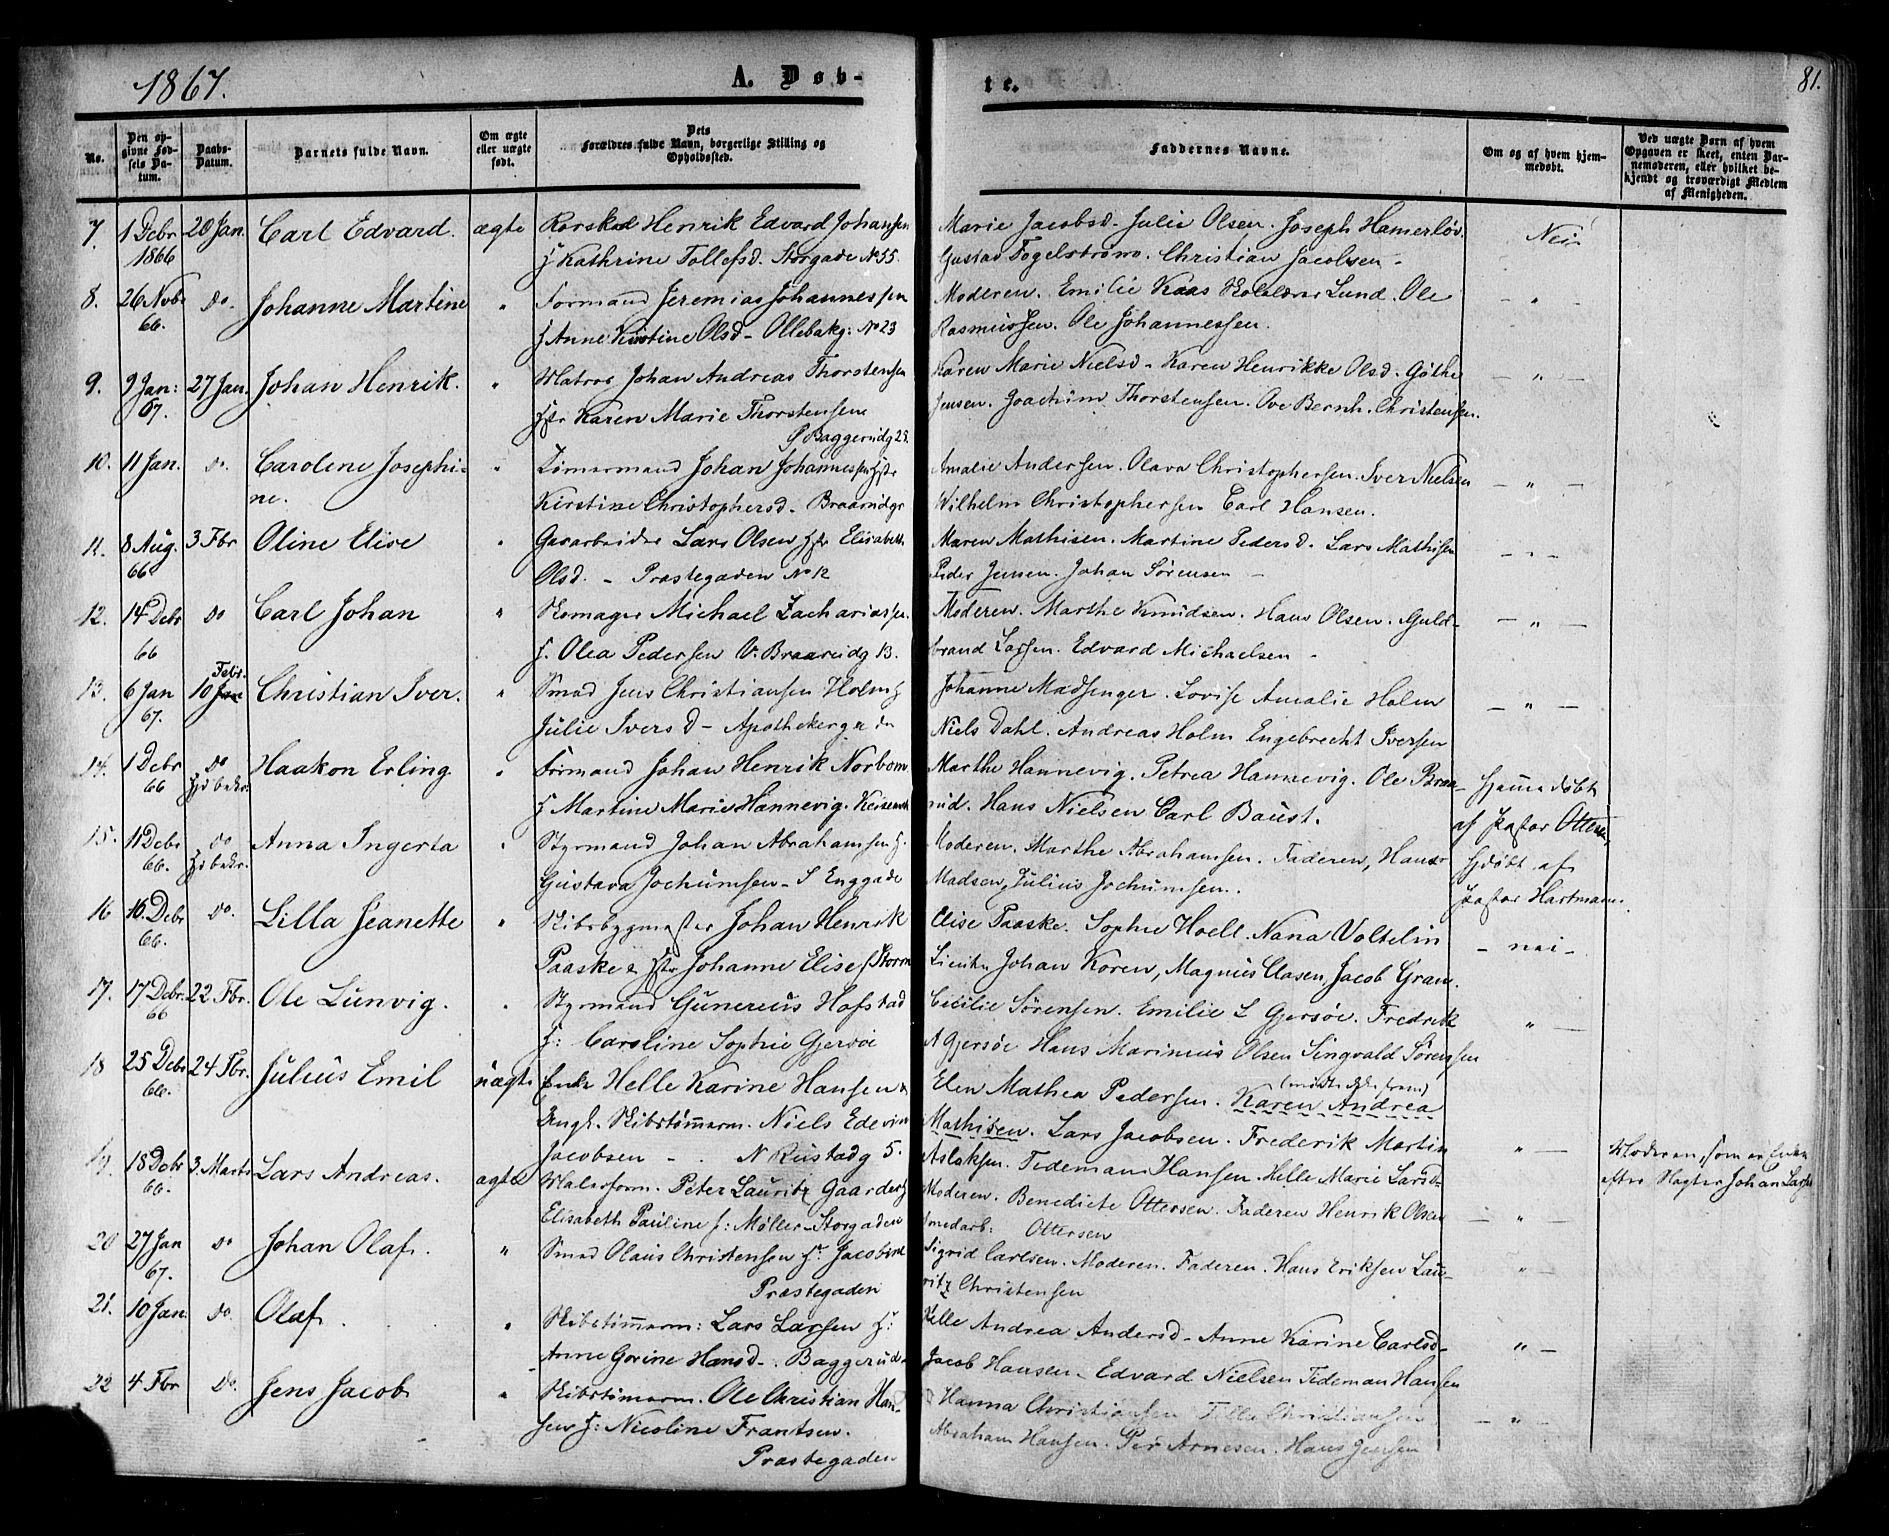 1867.
A. Døb-
te.
81.
No.
Den op-
givne Fød-
sels Da-
tum.
Daabs-
Datum.
Barnets fulde Navn.
Om ægte
eller uægte
født.
Dets
Forældres fulde Navn, borgerlige Stilling og
Opholdssted.
Faddernes Navne.
Om og af hvem hjem-
medøbt.
Ved uægte Børn af hvem
Opgaven er skeet, enten Bar-
nemoderen, eller hvilket be-
kjendt og troværdigt Medlem
af Menigheden.
7. 1 Debr 20 Jan. Carl Edvard. ægte Henrik Edvard Johansen Marie Jacobsd. Julie Olsen. Joseph Hamerløv. Nei
1866 Kathrine Tollefsd. Storgade No 55. Gustav Fogelstrøm. Christian Jacobsen -
8. 26 Novb Do. Johanne Martine " Formand Jeremias Johannessen Moderen. Emilie Kaas Lund. Ole - " -
66. Anne Kirstine Olsd - Ollebakg: No 23 Rasmussen. Ole Johannessen.
9. 9 Jan: 27 Jan. Johan Henrik. " Matros Johan Andreas Thorstensen Karen Marie Nielsd - Karen Henrikke Olsd. Gøthe - " -
67. Karen Marie Thorstensen Jensen. Joachim Thorstensen. Ove Bernh. Christensen.
Baggerudg 25.
10. 11 Jan. do. Carolene Josephi- " Tømermand Johan Johannessen Amalie Andersen. Olava Christophersen. Iver Nielsen - " -
ne. Kirstine Christophersd - Wilhelm Christophersen Carl Hansen.
11. 8 Aug. 3 Fbr Oline Elise " Lars Olsen Elisabeth Maren Mathisen. Martine Pedersd. Lars Mathisen - " -
66 Olsd. - Præstegaden No 12 Peder Jensen. Johan Sørensen -
12. 14 Debr do Carl Johan " Skomager Michael Zachariassen Moderen. Marthe Knudsen. Hans Olsen. Guld- - " -
66 Olea Pedersen V. 13. brand Larsen. Edvard Michaelsen -
Febr.
13. 6 Jan 10 Jan Christian Iver. " Smed Jens Christiansen Holm Johanne Madsenger. Lovise Amalie Holm - " -
67. Julie Iversd - Niels Dahl. Andreas Holm Engebrecht Iversen
14. 1 Debr do Haakon Erling " Johan Henrik Norbom Marthe Hannevig. Petrea Hannevig. Ole Braa- Hjemmedøbt
66 Martine Marie Hannevig. rud. Hans Nielsen Carl Baust. af Pastor Ottesen
15. 11 Debr do Anna Ingerta " Styrmand Johan Abrahamsen Moderen. Marthe Abrahamsen. Faderen, Hans Hjdøbt af
66. Gustava Jochumsen - S Enggade Madsen, Julius Jochumsen. Pastor Hartmann.
16 16 Debr do. Lilla Jeanette " Skibsbygmester Johan Henrik Elise Paaske. Sophie Hoell. Nana Voltelin - nei -
66. Paaske & Johanne Elise f Storm Johan Koren, Magnus Clasen, Jacob Gram.
17. 17 Debr. 22 Fbr. Ole Lunvig. " Styrmand Gunereus Hofstad Cecilie Sørensen. Emilie L Gjersøe. Fredrik " -
66 Caroline Sophie Gjersøe A Gjersøe Hans Marinius Olsen Singvald Sørensen
18 25 Debr 24 Fbr. Julius Emil uægte Enke Helle Karine Hansen & Elen Mathea Pedersen. Karen Andrea
66. Ungk. Skibstømerm. Niels Edevin Mathisen. Lars Jacobsen. Frederik Martin " - Moderen, som er Enke
Jacobsen - N Rustadg 5. Aslaksen. Tideman Hansen. Helle Marie Larsd efter Johan
19. 18 Debr 3. Marts Lars Andreas. ægte Peter Lauritz Gaarder Moderen. Benedicte Ottersen. Faderen Henrik Olsen - " -
66. Elisabeth Pauline f: Møller - Storgaden Ottersen
20 27 Jan do Johan Olaf. " Smed Olaus Christensen Jacobine Sigrid Carlsen. Moderen. Faderen. Hans Eriksen Lau- " -
67. Præstegaden ritz Christensen
21. 10 Jan. do. Olaf. " Skibstømerm: Lars Larsen Helle Andrea Andersd - Anne Karine Carlsd - " -
Anne Gorine Hansd - Baggerud- Jacob Hansen - Edvard Nielsen Tideman Hansen
22 4 Fbr Do. Jens Jacob " Skibstømerm. Ole Christian Han- Hanna Christiansen Tilla Christiansen - " -
sen Nicoline Frantsen. Abraham Hansen. Per Arnesen. Hans Jensen
Præstegaden